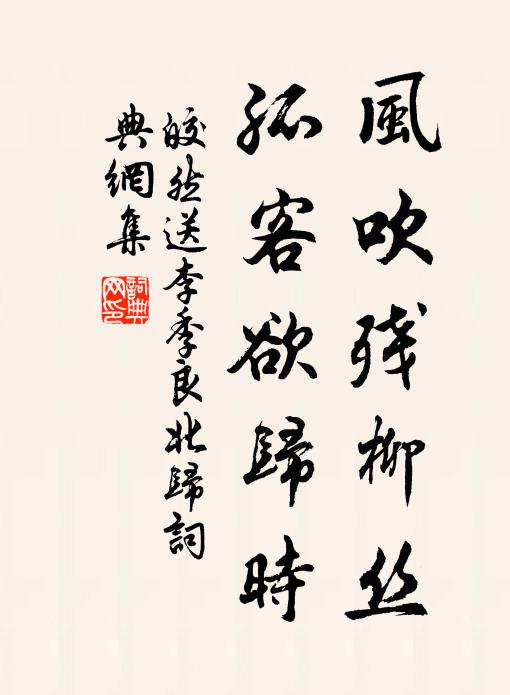 風吹残柳丝
孤客欲歸時
皎然送李季良北歸詞
典網集
詞典
网印